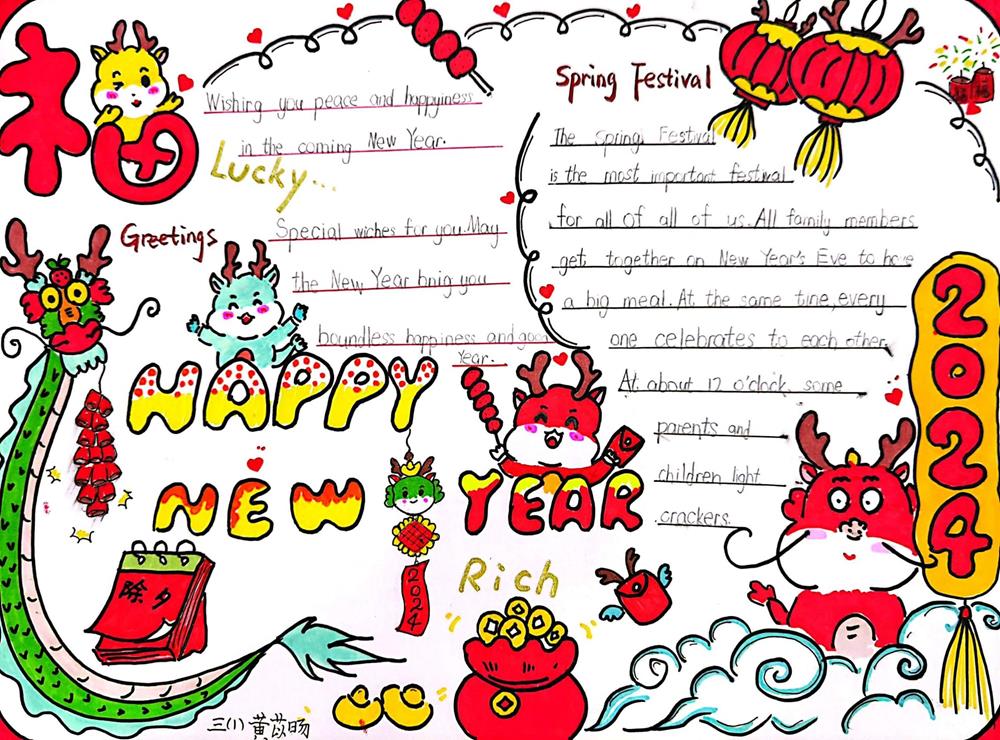 福
Wishing you peace and happyiness
in the coming New Year.
Lucky...
Greetings
Special wiches for you.May
the New Year bnig you
boundless happiness and good
Year.
Spring Festival
The Spring Festival
is the most important festival
for all of all of us. All family members
get together on New Year's Eve to have
a big meal. At the same time, every
one celebrates to each other.
At about 12 o'clock, some
parents and
children light
crackers.
福
福
2024
HAPPY
NEW YEAR
2024
除夕
Rich
三(1) 黄苡旸